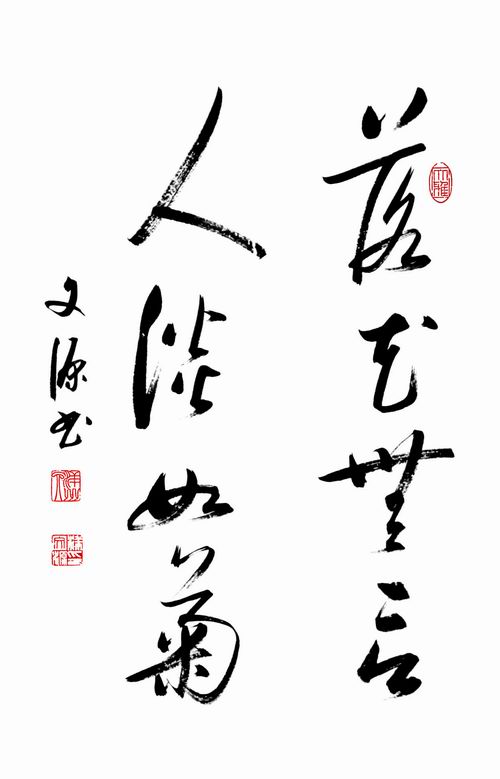 落花無言
人淡如菊
文源书